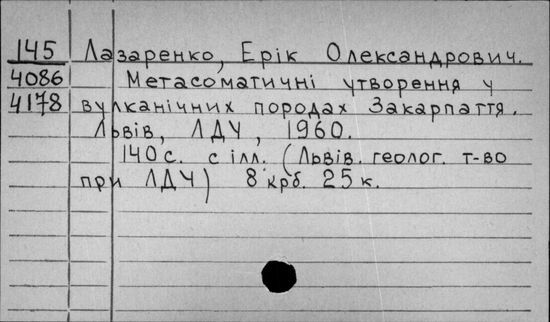 145 Лазаренко, Ерік Олександрович.
4086 Метасоматичні утворення у
4178 вулканічних породах Закарпаття.
Львів, ЛДУ, 1960.
140 с. с ілл. (Львів. геолог. т-во
при ЛДУ) 8 крб. 25 к.